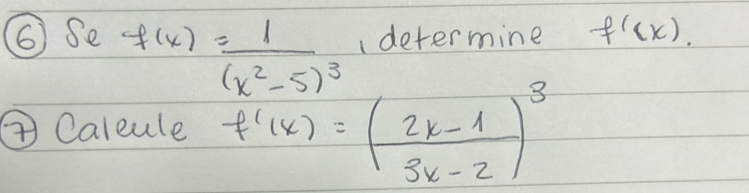 ⑥ Se f(x) = 1/(x² - 5)³ , determine f'(x).
⑦ Calcule f'(x) = ((2x - 1)/(3x - 2))³